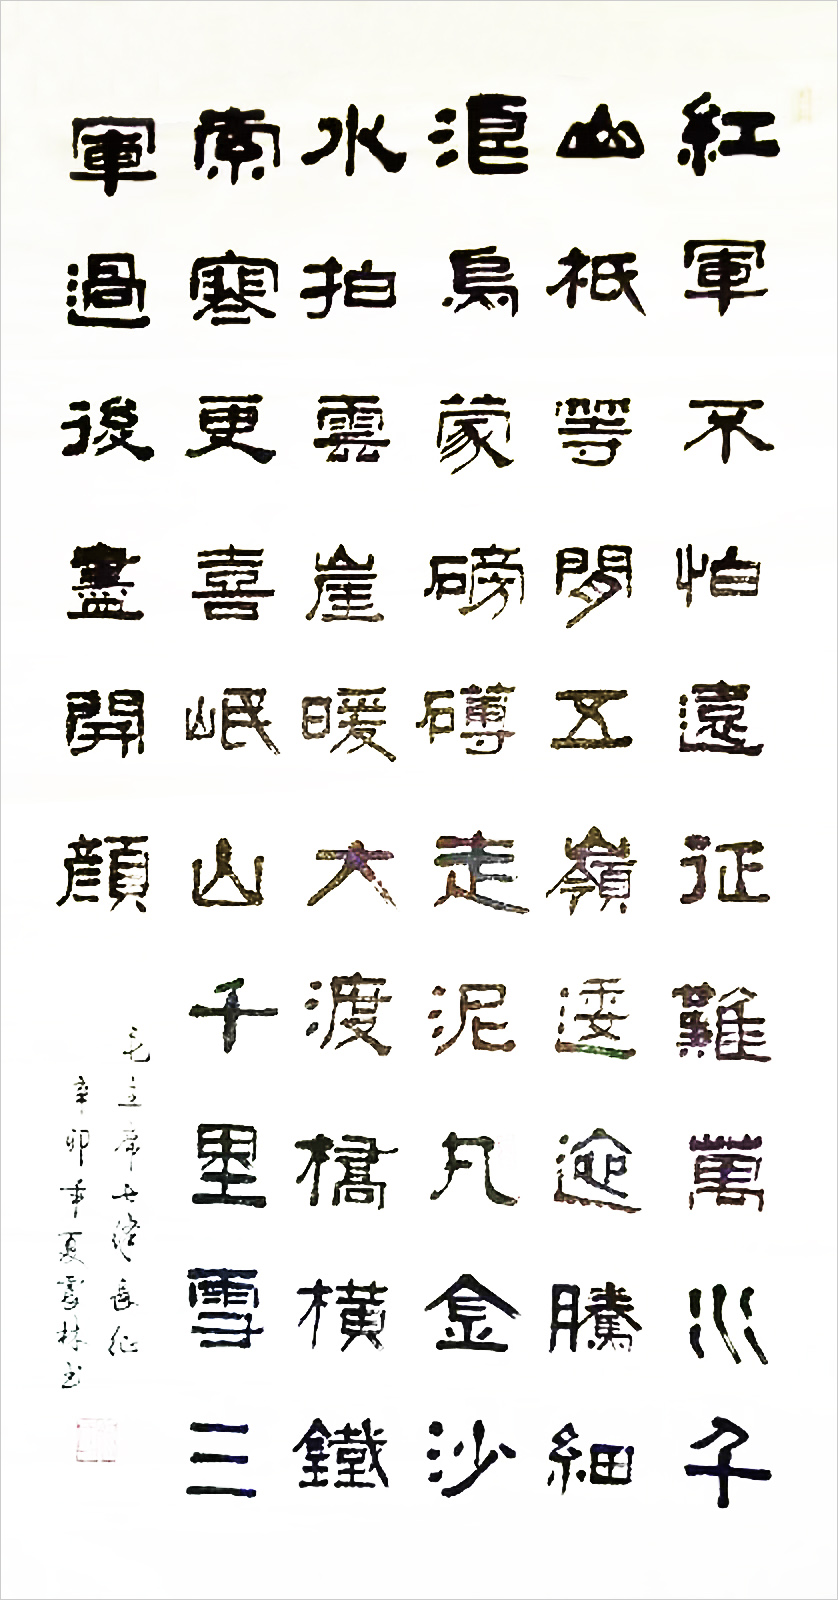 紅軍不怕遠征難萬水千
山祇等閒五嶺逶迤騰細
浪烏蒙磅礡走泥丸金沙
水拍雲崖暖大渡橋橫鐵
索寒更喜岷山千里雪三
軍過後盡開顏
毛主席七律長征
辛卯年夏雲林书